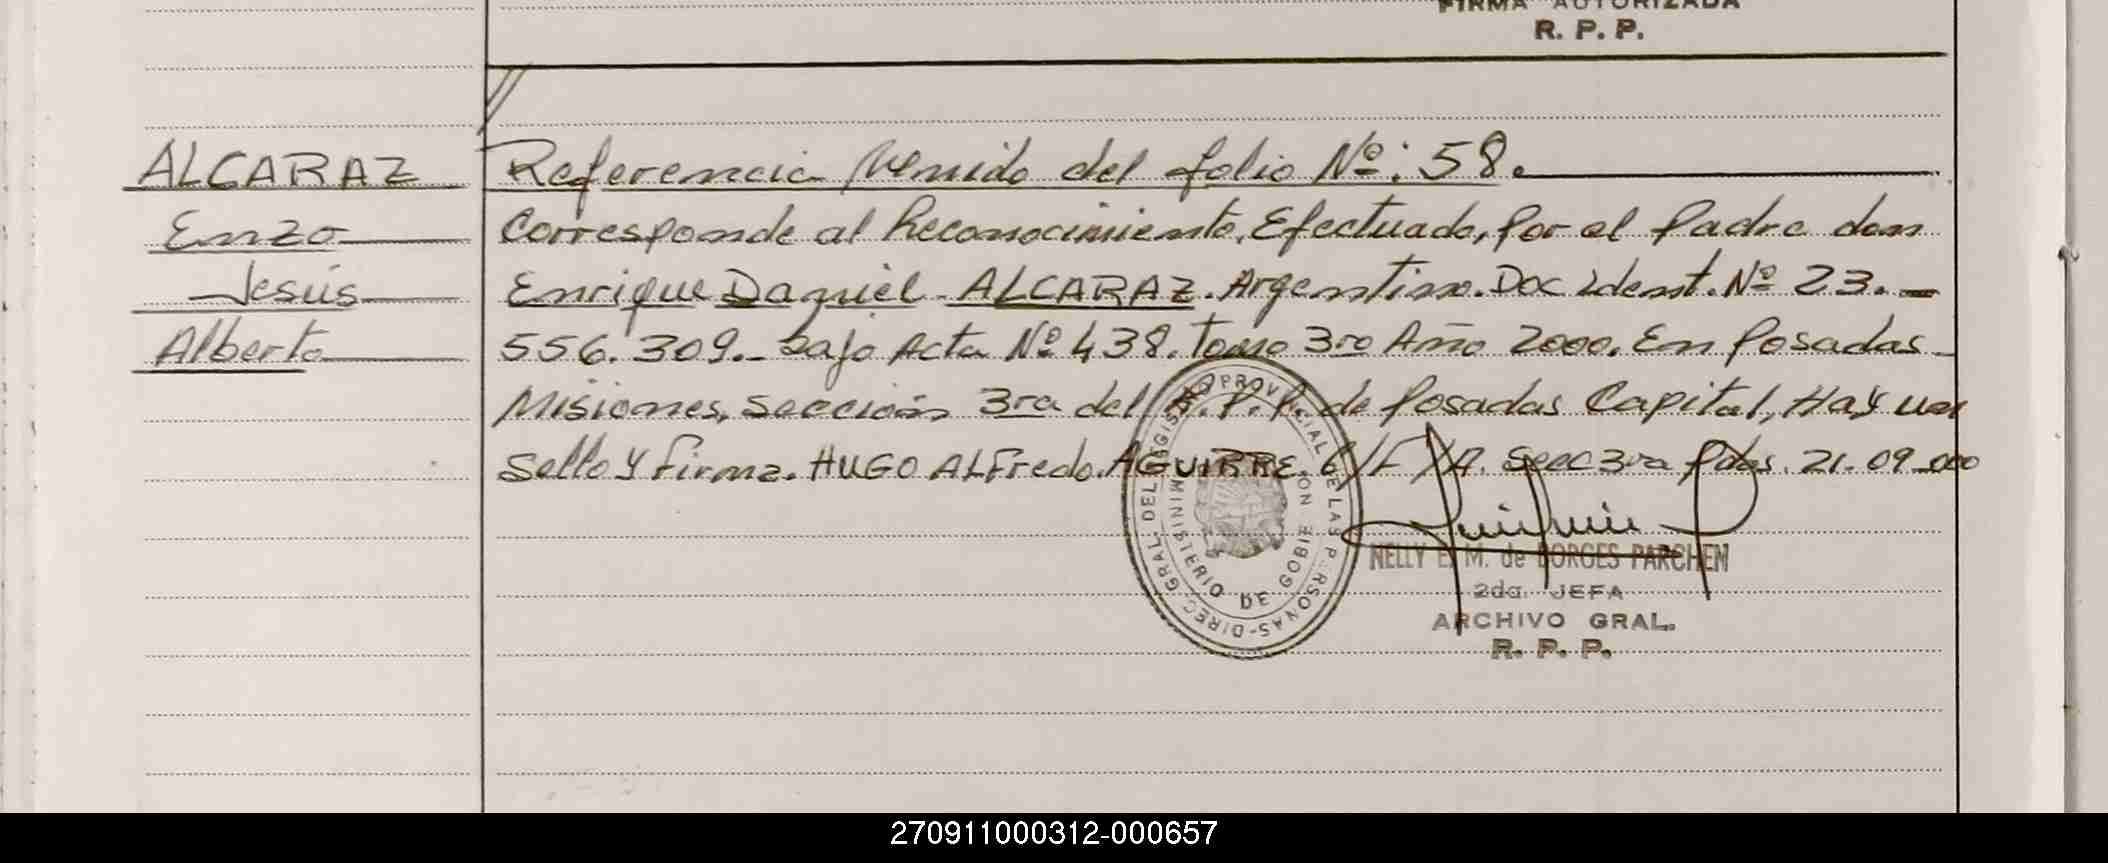 FIRMA AUTORIZADA
R. P. P.
ALCARAZ
Enzo
Jesús
Alberto
Referencia Venido del folio Nº: 58.
Corresponde al Reconocimiento, Efectuado, por el Padre don
Enrique Daniel ALCARAZ. Argentino. Doc Ident. Nº 23.-
556.309.- bajo Acta Nº 438. Tomo 3ro Año 2000. En Posadas
Misiones, Sección 3ra del R.P.P. de Posadas Capital, Hay un
Sello y firma. HUGO ALFredo. AGUIRRE. Secc 3ra Pdas. 21-09-000
DIREC. GRAL DEL REGISTRO PROVINCIAL DE LAS PERSONAS
MINISTERIO DE GOBIE
NELLY E. M. de BORGES PARCHEM
2da. JEFA
ARCHIVO GRAL.
R. P. P.
270911000312-000657